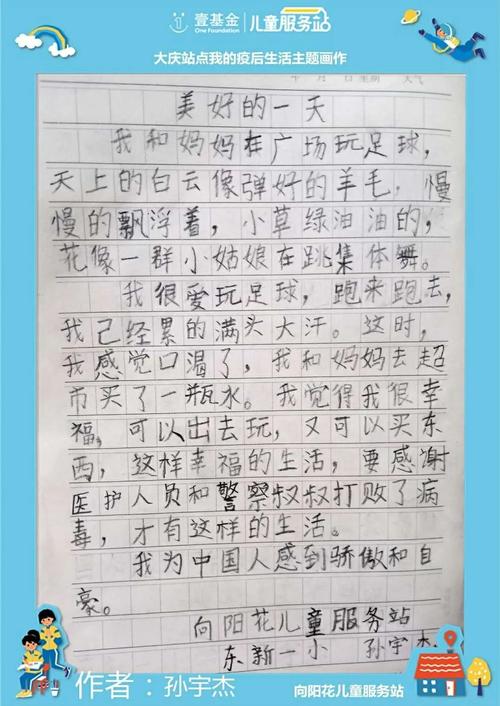 壹基金
One Foundation
儿童服务站
大庆站点我的疫后生活主题画作
年 月 日 星期 天气
美好的一天
我和妈妈在广场玩足球，
天上的白云像弹好的羊毛，慢
慢的飘浮着，小草绿油油的，
花像一群小姑娘在跳集体舞。
我很爱玩足球，跑来跑去，
我已经累的满头大汗。这时，
我感觉口渴了，我和妈妈去超
市买了一瓶水。我觉得我很幸
福，可以出去玩，又可以买东
西，这样幸福的生活，要感谢
医护人员和警察叔叔打败了病
毒，才有这样的生活。
我为中国人感到骄傲和自
豪。
向阳花儿童服务站
东新一小 孙宇杰
作者：孙宇杰
向阳花儿童服务站